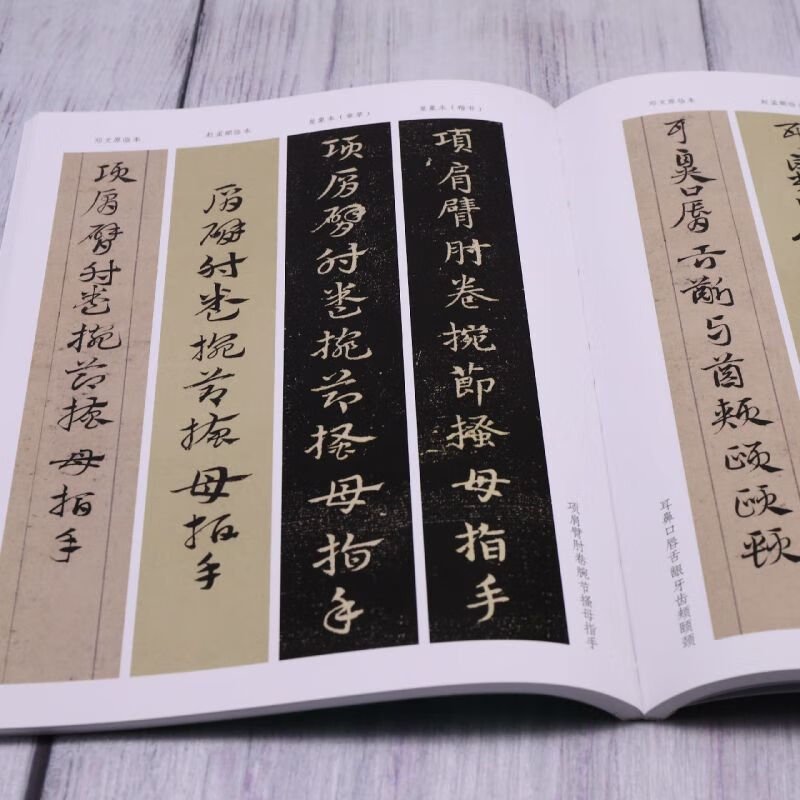 邓文原临本
赵孟頫临本
皇象本(章草)
皇象本(楷书)
項肩臂肘卷捥節搔母指手
肩臂肘卷捥節搔母指手
項肩臂肘卷捥節搔母指手
項肩臂肘卷捥節搔母指手
项肩臂肘卷腕节搔母指手
邓文原临本
赵孟頫临本
耳鼻口脣舌齗牙齒頰頤頤頸
耳鼻口唇舌龈牙齿颊颐颈